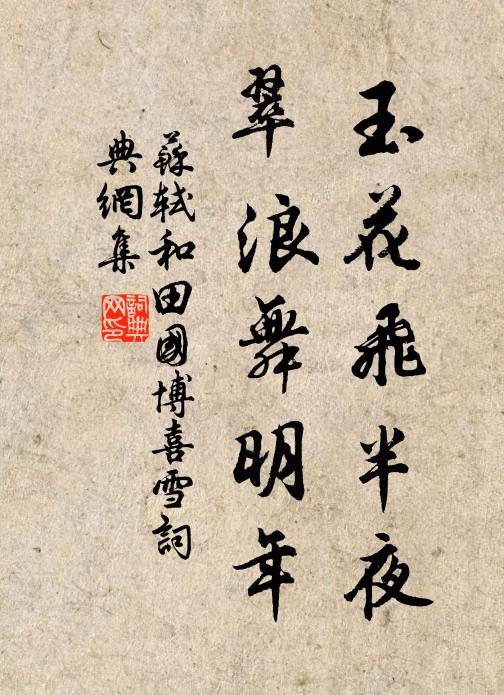 玉花飛半夜
翠浪舞明年
蘇軾和田國博喜雪詞
典網集
詞典
网印